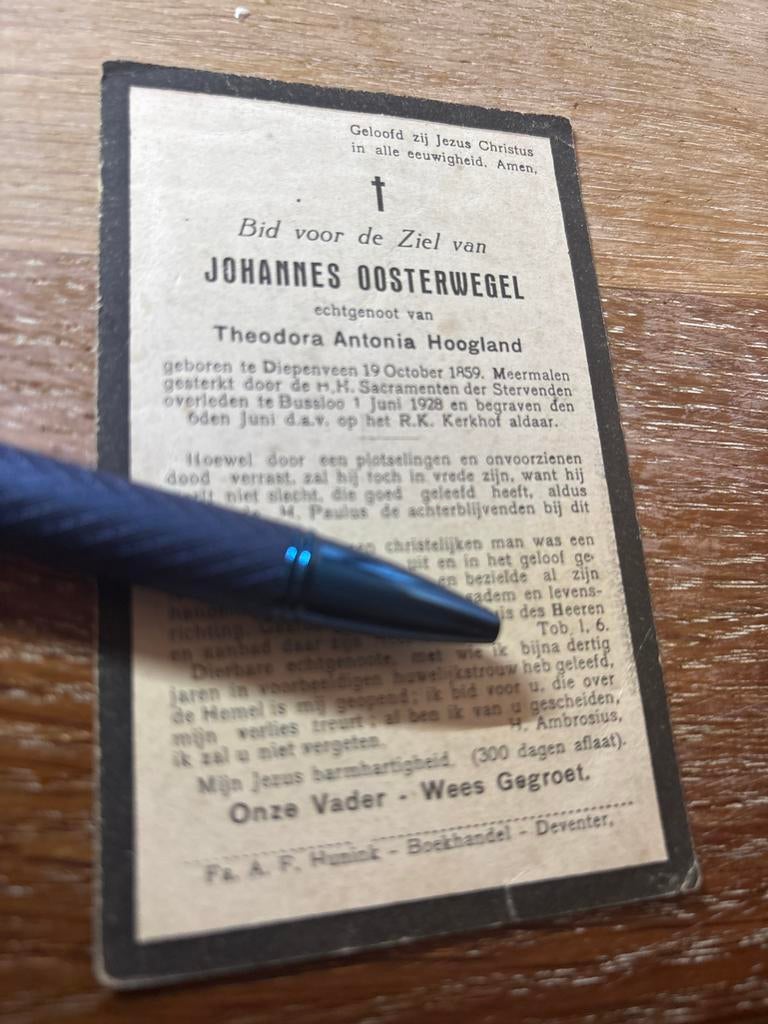 Geloofd zij Jezus Christus
in alle eeuwigheid. Amen,
Bid voor de Ziel van
JOHANNES OOSTERWEGEL
echtgenoot van
Theodora Antonia Hoogland
geboren te Diepenveen 19 October 1859. Meermalen
gesterkt door de H.H. Sacramenten der Stervenden
overleden te Bussloo 1 Juni 1928 en begraven den
6den Juni d.a.v. op het R.K. Kerkhof aldaar.
Hoewel door een plotselingen en onvoorzienen
dood verrast, zal hij toch in vrede zijn, want hij
niet slecht, die goed geleefd heeft, aldus
H. Paulus de achterblijvenden bij dit
christelijken man was een
uit en in het geloof ge-
bezielde al zijn
en levens-
des Heeren
richting.
en aanbad daar Tob. 1, 6.
Dierbare echtgenoote, met wie ik bijna dertig
jaren in voorbeeldigen huwelijkstrouw heb geleefd,
de Hemel is mij geopend; ik bid voor u, die over
mijn verlies treurt; al ben ik van u gescheiden,
ik zal u niet vergeten. H. Ambrosius,
Mijn Jezus barmhartigheid. (300 dagen aflaat).
Onze Vader - Wees Gegroet.
Fa. A. F. Hunink - Boekhandel - Deventer,